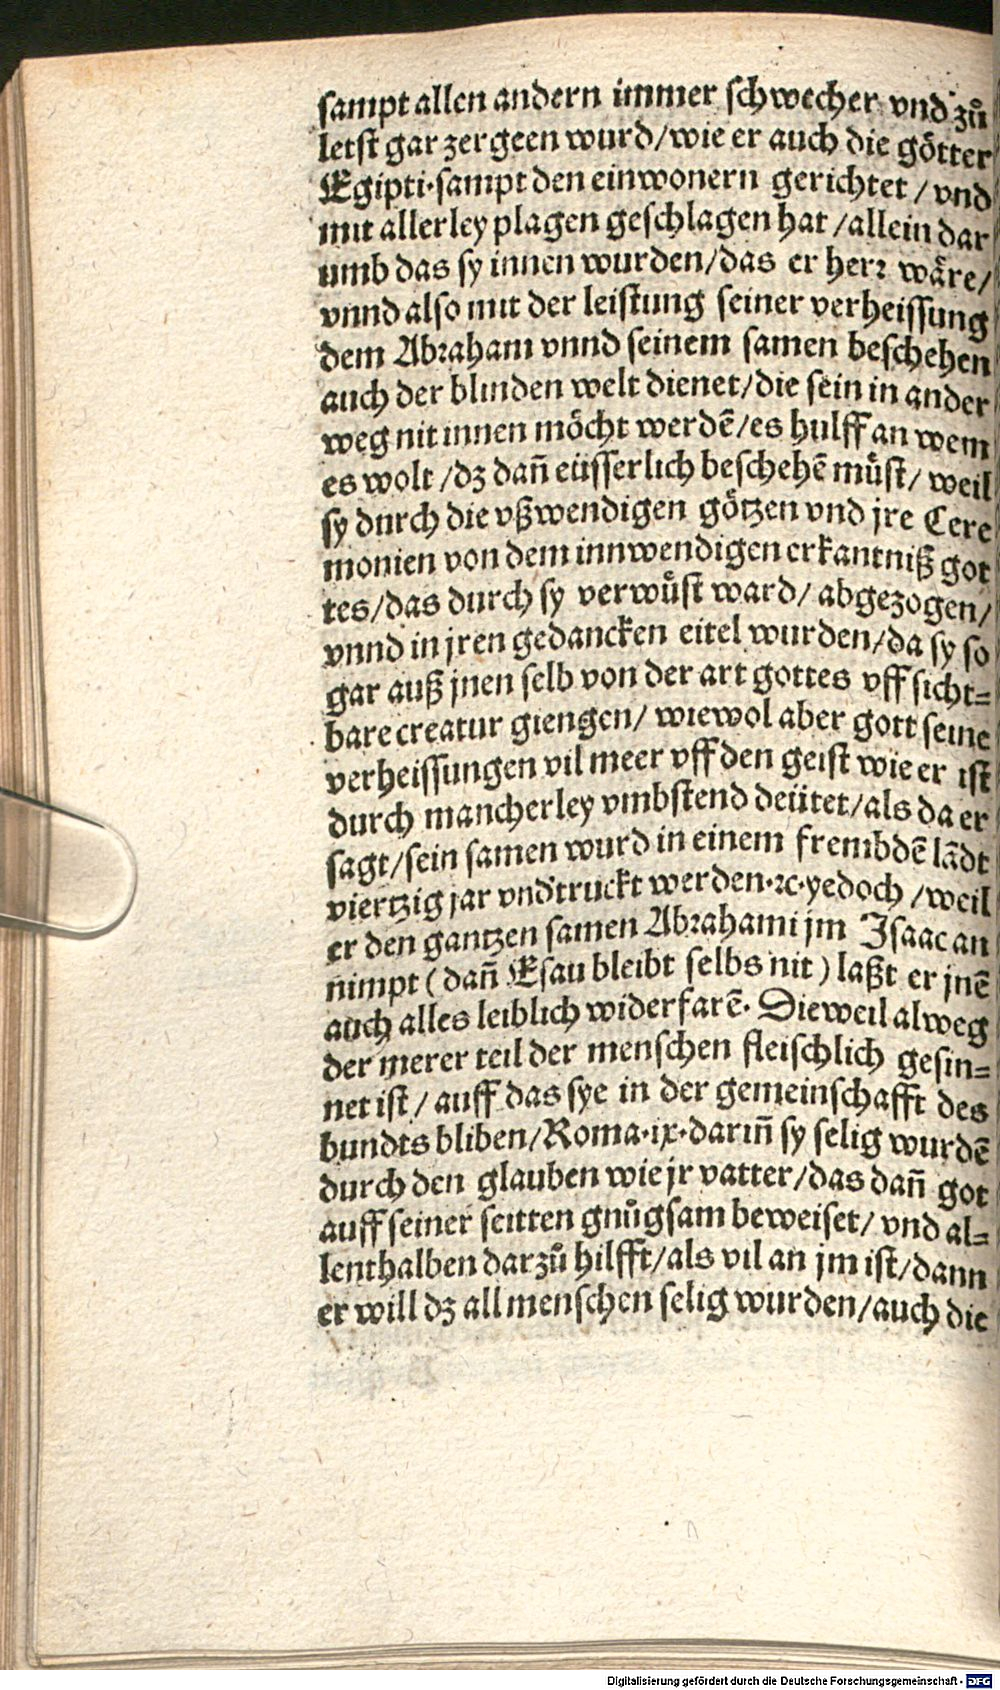 sampt allen andern immer schwecher vnd zů
letst gar zergeen wurd/wie er auch die götter
Egipti·sampt den einwonern gerichtet/vnd
mit allerley plagen geschlagen hat/allein dar
umb das sy innen wurden/das er herr wäre/
vnnd also mit der leistung seiner verheissung
dem Abraham vnnd seinem samen beschehen
auch der blinden welt dienet/die sein in ander
weg nit innen möcht werdē/es hulff an wem
es wolt/dz dañ eüsserlich beschehē müst/weil
sy durch die vßwendigen götzen vnd jre Cere
monien von dem innwendigen erkantniß got
tes/das durch sy verwüst ward/abgezogen/
vnnd in jren gedancken eitel wurden/da sy so
gar auß jnen selb von der art gottes vff sicht=
bare creatur giengen/wiewol aber gott seine
verheissungen vil meer vff den geist wie er ist
durch mancherley vmbstend deütet/als da er
sagt/sein samen wurd in einem frembdē lādt
viertzig jar vndtruckt werden·ꝛc·yedoch/weil
er den gantzen samen Abrahami jm Isaac an
nimpt (dañ Esau bleibt selbs nit) laßt er jnē
auch alles leiblich widerfarē. Dieweil alweg
der merer teil der menschen fleischlich gesin=
net ist/auff das sye in der gemeinschafft des
bundts bliben/Roma·ix·dariñ sy selig wurdē
durch den glauben wie jr vatter/das dañ got
auff seiner seitten gnůgsam beweiset/vnd al=
lenthalben darzů hilfft/als vil an jm ist/dann
er will dz all menschen selig wurden/auch die
Digitalisierung gefördert durch die Deutsche Forschungsgemeinschaft - DFG